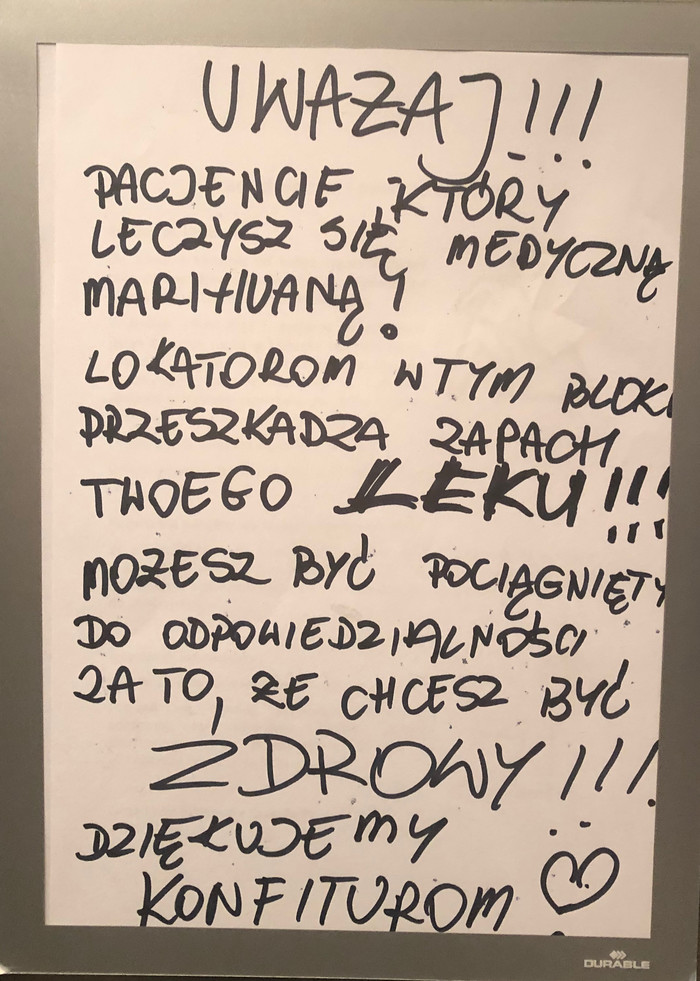 UWAŻAJ!!!
PACJENCIE KTÓRY
LECZYSZ SIĘ MEDYCZNĄ
MARIHUANĄ!
LOKATOROM W TYM BLOK
PRZESZKADZA ZAPACH
TWOEGO LEKU!!!
MOŻESZ BYĆ POCIĄGNIĘTY
DO ODPOWIEDZIALNOŚCI
ZA TO, ŻE CHCESZ BYĆ
ZDROWY!!!
DZIĘKUJEMY
KONFITUROM ♡
DURABLE